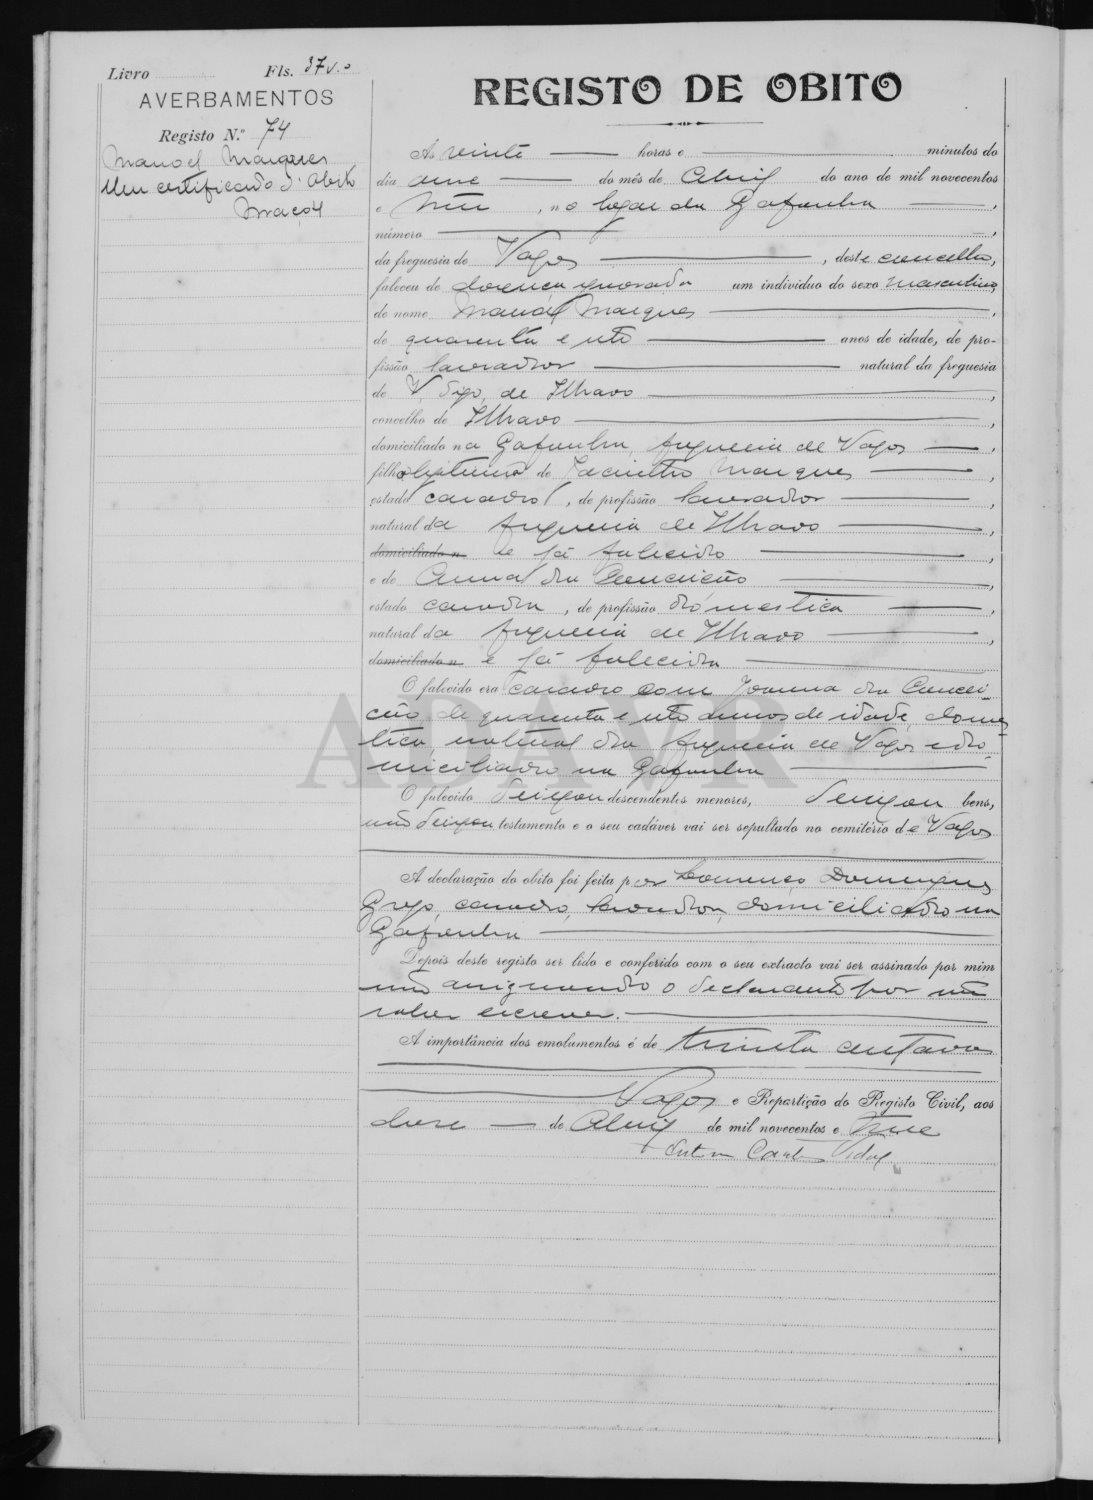 Livro Fls. 37 v.o
AVERBAMENTOS
Registo N.º 74
Manoel Marques
Um certificado d'obito
REGISTO DE OBITO
Ás vinte horas e minutos do
dia do mês de Abril do ano de mil novecentos
e , no logar da Gafanha ,
número ,
da freguesia de Vagos , deste concelho,
faleceu de doença ignorada um individuo do sexo masculino,
de nome Manoel Marques ,
de quarenta e oito anos de idade, de pro-
fissão lavrador natural da freguesia
de de Ilhavo ,
concelho de Ilhavo ,
domiciliado na Gafanha, freguesia de Vagos ,
filho legitimo de Jacintho Marques ,
estado casado , de profissão lavrador ,
natural da freguesia de Ilhavo ,
domiciliado n e já falecido ,
e de Anna da Conceição ,
estado casada , de profissão domestica ,
natural da freguesia de Ilhavo ,
domiciliada n e já falecida
O falecido era casado com Joanna da Concei-
ção, de quarenta e oito annos de idade, domes-
tica, natural da freguesia de Vagos e do-
miciliado na Gafanha
O falecido deixou descendentes menores, deixou bens,
não deixou testamento e o seu cadáver vai ser sepultado no cemitério de Vagos
A declaração do obito foi feita por Lourenço Domingues
Grego, casado, lavrador, domiciliado na
Gafanha
Depois deste registo ser lido e conferido com o seu extracto vai ser assinado por mim
não assignando o declarante por não
saber escrever.
A importância dos emolumentos é de trinta centavos
Vagos e Repartição do Registo Civil, aos
doze de Abril de mil novecentos e
Vidal
ADAVR